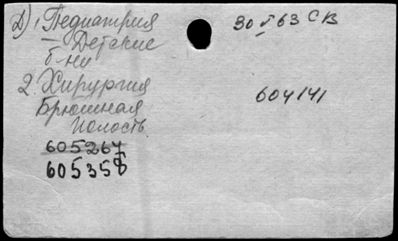 Д) 1. Педиатрия 30 V 63 СВ
– Детские
б-ни
2. Хирургия 604141
Брюшная
полость
605267
605358